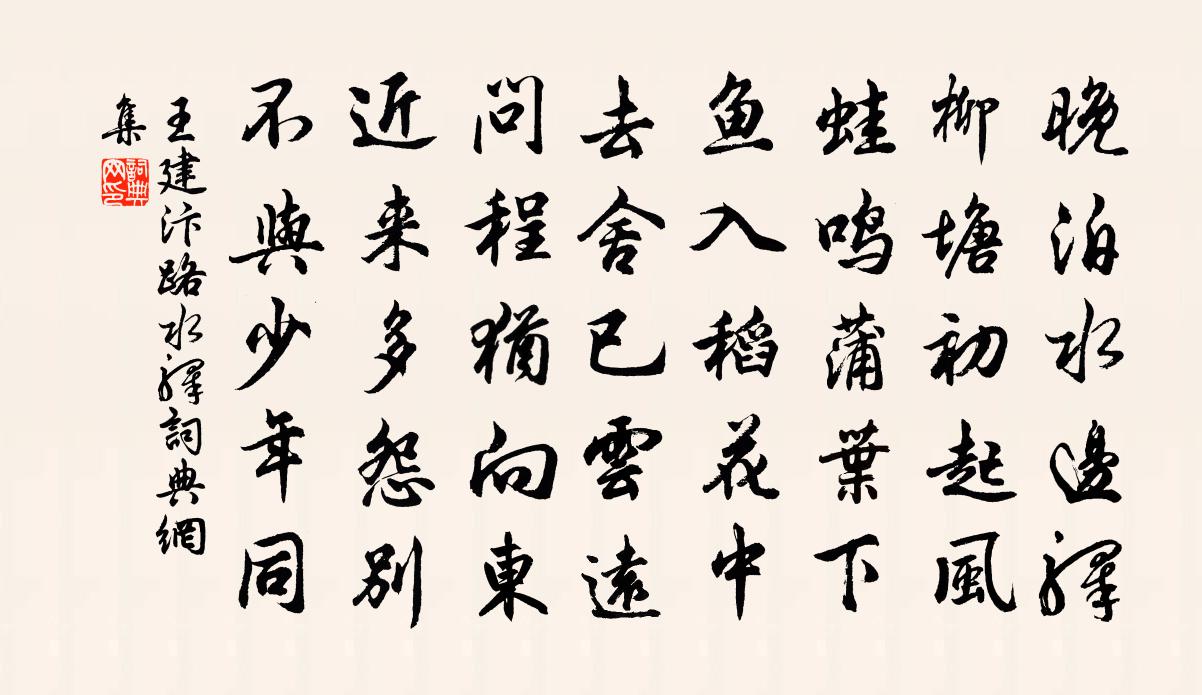 晚泊水邊驛
柳塘初起風
蛙鳴蒲葉下
魚入稻花中
去舍已雲遠
問程猶向東
近来多怨別
不與少年同
王建汴路水驛詞典網
集
詞典網印